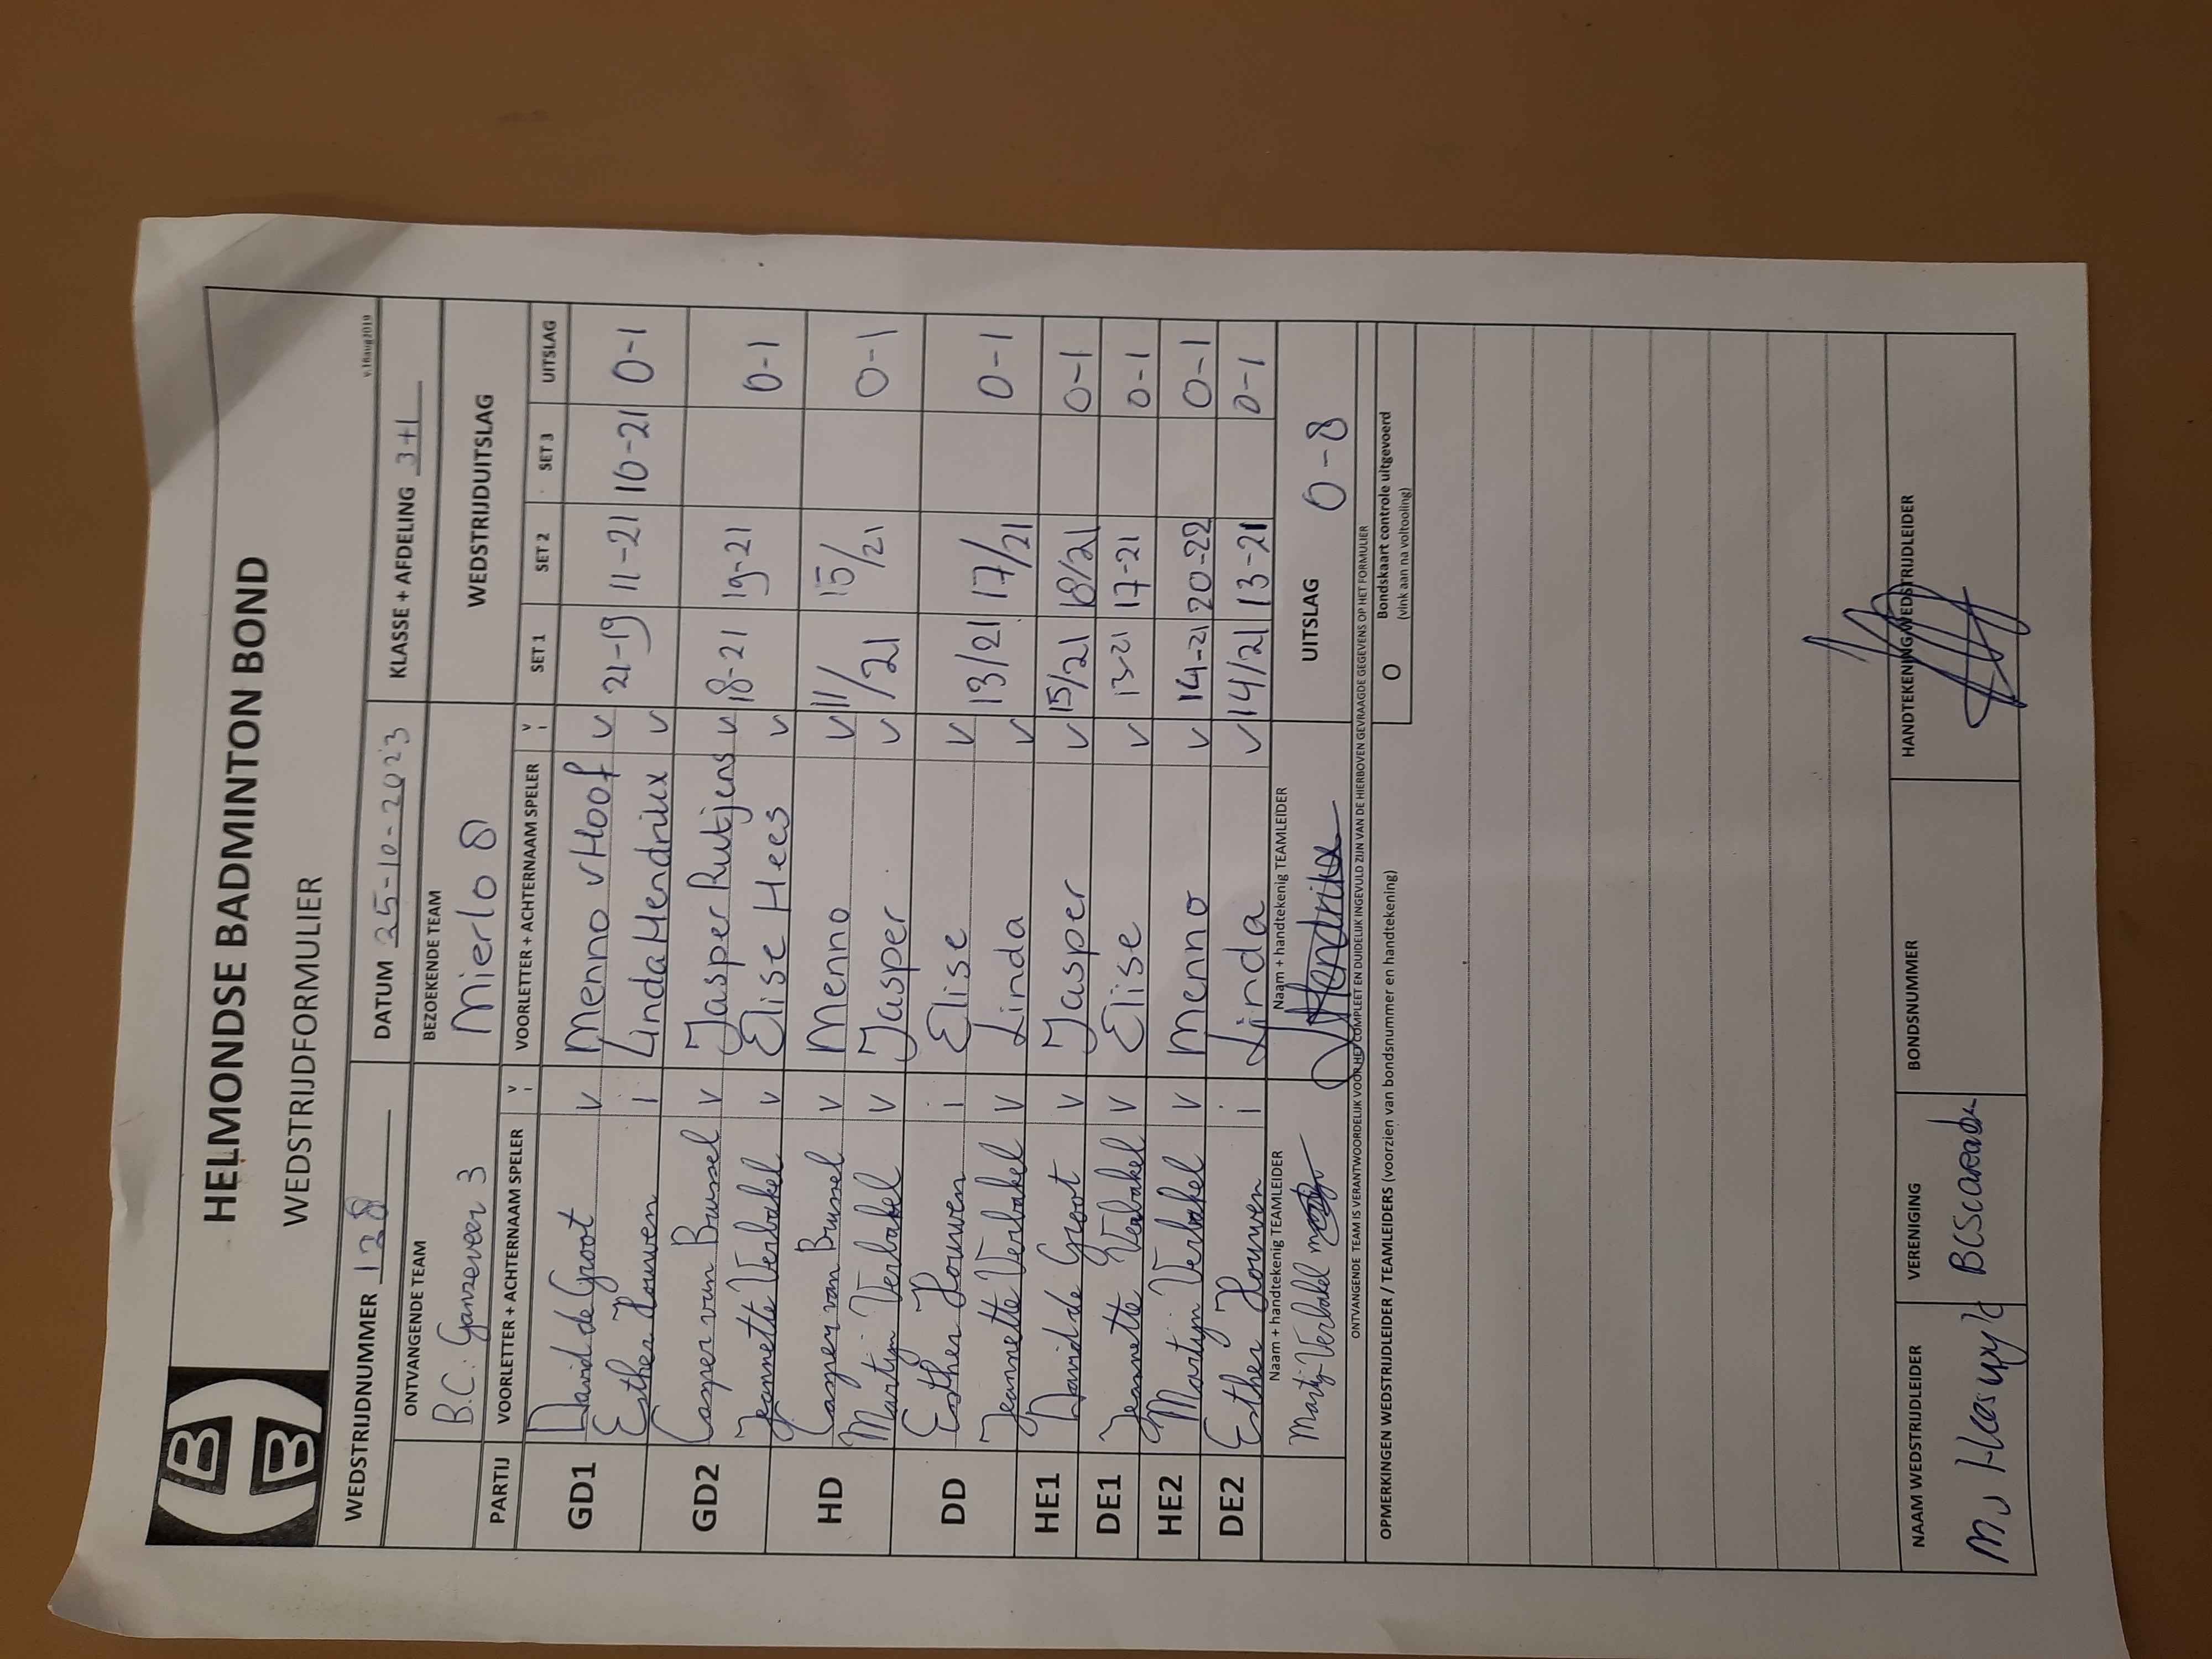 HELMONDSE BADMINTON BOND
WEDSTRIJDFORMULIER
v.18aug2019
WEDSTRIJDNUMMER 128 DATUM 25-10-2023 KLASSE + AFDELING 3+1
ONTVANGENDE TEAM BEZOEKENDE TEAM WEDSTRIJDUITSLAG
B.C. Ganzeveer 3 Mierlo 8
PARTIJ VOORLETTER + ACHTERNAAM SPELER V i VOORLETTER + ACHTERNAAM SPELER V i SET 1 SET 2 SET 3 UITSLAG
GD1 David de Groot v Menno v Hoof v 21-19 11-21 10-21 0-1
Esther Houwen i Linda Hendrikx v
GD2 Casper van Brussel v Jasper Rutjens v 18-21 19-21 0-1
Jeannette Verbakel v Elise Hees v
HD Casper van Brussel v Menno v 11/21 15/21 0-1
Martijn Verbakel v Jasper v
DD Esther Houwen i Elise v 13/21 17/21 0-1
Jeannette Verbakel v Linda v
HE1 David de Groot v Jasper v 15/21 18/21 0-1
DE1 Jeannette Verbakel v Elise v 13-21 17-21 0-1
HE2 Martijn Verbakel v Menno v 14-21 20-22 0-1
DE2 Esther Houwen i Linda v 14/21 13-21 0-1
Naam + handtekenig TEAMLEIDER Naam + handtekenig TEAMLEIDER UITSLAG 0-8
Martijn Verbakel Hendrikx
ONTVANGENDE TEAM IS VERANTWOORDELIJK VOOR HET COMPLEET EN DUIDELIJK INGEVULD ZIJN VAN DE HIERBOVEN GEVRAAGDE GEGEVENS OP HET FORMULIER
OPMERKINGEN WEDSTRIJDLEIDER / TEAMLEIDERS (voorzien van bondsnummer en handtekening) O Bondskaart controle uitgevoerd
(vink aan na voltooling)
NAAM WEDSTRIJDLEIDER VERENIGING BONDSNUMMER HANDTEKENING WEDSTRIJDLEIDER